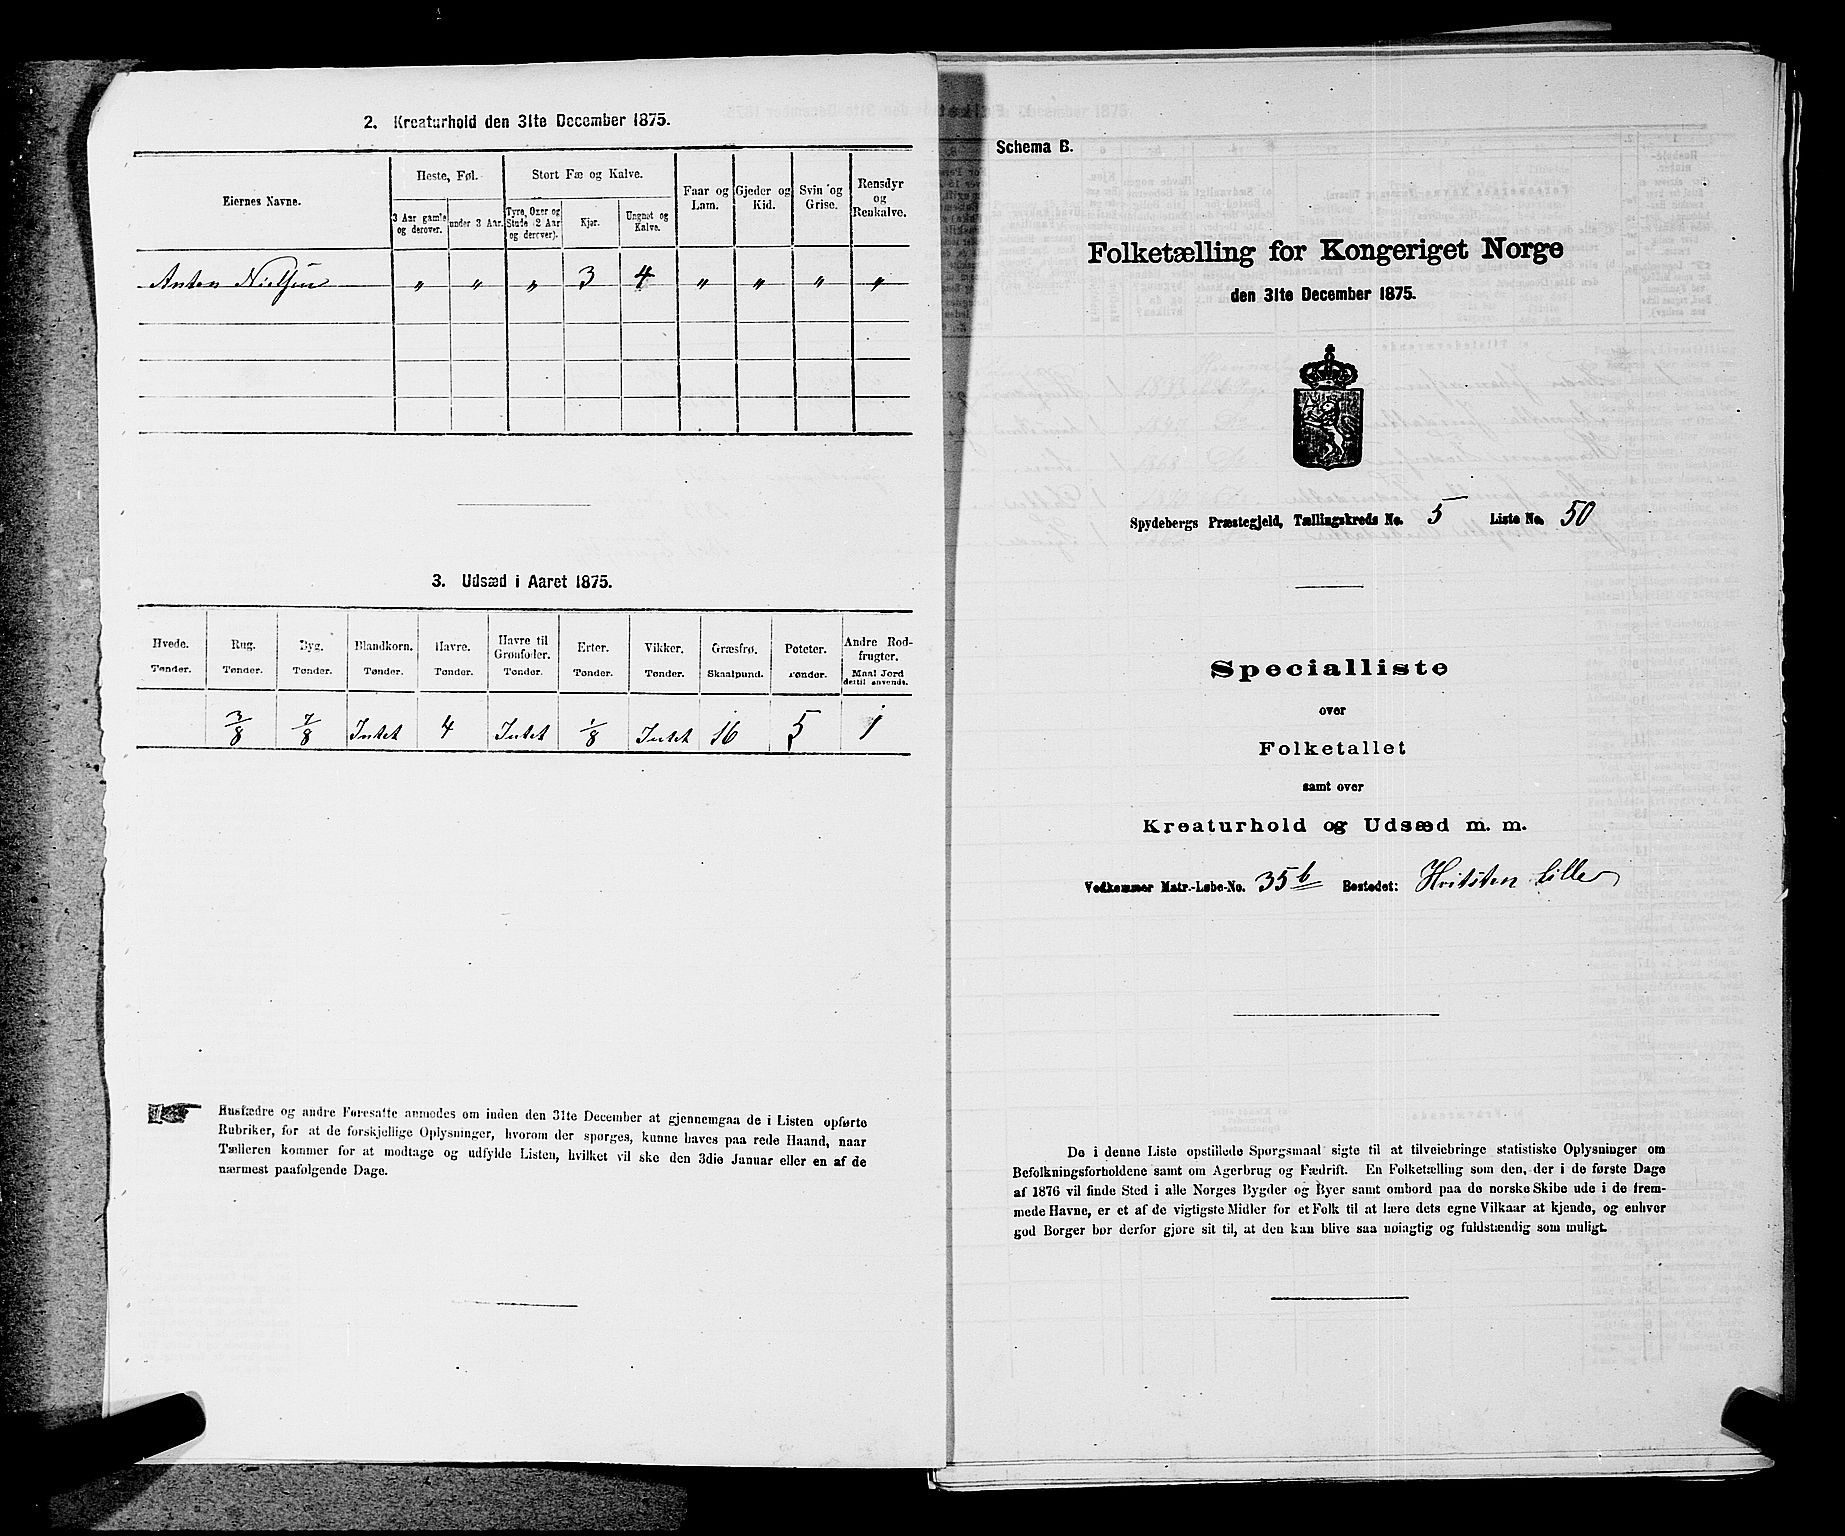 2. Kreaturhold den 31te December 1875.
Eiernes Navne.
Heste, Føl.
Stort Fæ og Kalve.
Faar og Lam.
Gjeder og Kid.
Svin og Grise.
Rensdyr og Renkalve.
3 Aar gamle og derover.
under 3 Aar.
Tyre, Oxer og Stude (2 Aar og derover).
Kjør.
Ungnøt og Kalve.
Anton Nielsen " " " 3 4 " " " "
3. Udsæd i Aaret 1875.
Hvede. Rug. Byg. Blandkorn. Havre. Havre til Grønfoder. Erter. Vikker. Græsfrø. Poteter. Andre Rodfrugter.
Tønder. Tønder. Tønder. Tønder. Tønder. Tønder. Tønder. Tønder. Skaalpund. Tønder. Maal Jord dertil anvendt.
3/8 7/8 Intet 4 Intet 1/8 Intet 16 5 1
Husfædre og andre Foresatte anmodes om inden den 31te December at gjennemgaa de i Listen opførte
Rubriker, for at de forskjellige Oplysninger, hvorom der spørges, kunne haves paa rede Haand, naar
Tælleren kommer for at modtage og udfylde Listen, hvilket vil ske den 3die Januar eller en af de
nærmest paafølgende Dage.
Schema B.
Folketælling for Kongeriget Norge
den 31te December 1875.
Spydebergs Præstegjeld, Tællingskreds No. 5 Liste No. 50
Specialliste
over
Folketallet
samt over
Kreaturhold og Udsæd m. m.
Vedkommer Matr.-Løbe-No. 35b Bostedet: Hvitsten Lille
De i denne Liste opstillede Spørgsmaal sigte til at tilveiebringe statistiske Oplysninger om
Befolkningsforholdene samt om Agerbrug og Fædrift. En Folketælling som den, der i de første Dage
af 1876 vil finde Sted i alle Norges Bygder og Byer samt ombord paa de norske Skibe ude i de frem-
mede Havne, er et af de vigtigste Midler for et Folk til at lære dets egne Vilkaar at kjende, og enhver
god Borger bør derfor gjøre sit til, at den kan blive saa nøiagtig og fuldstændig som muligt.